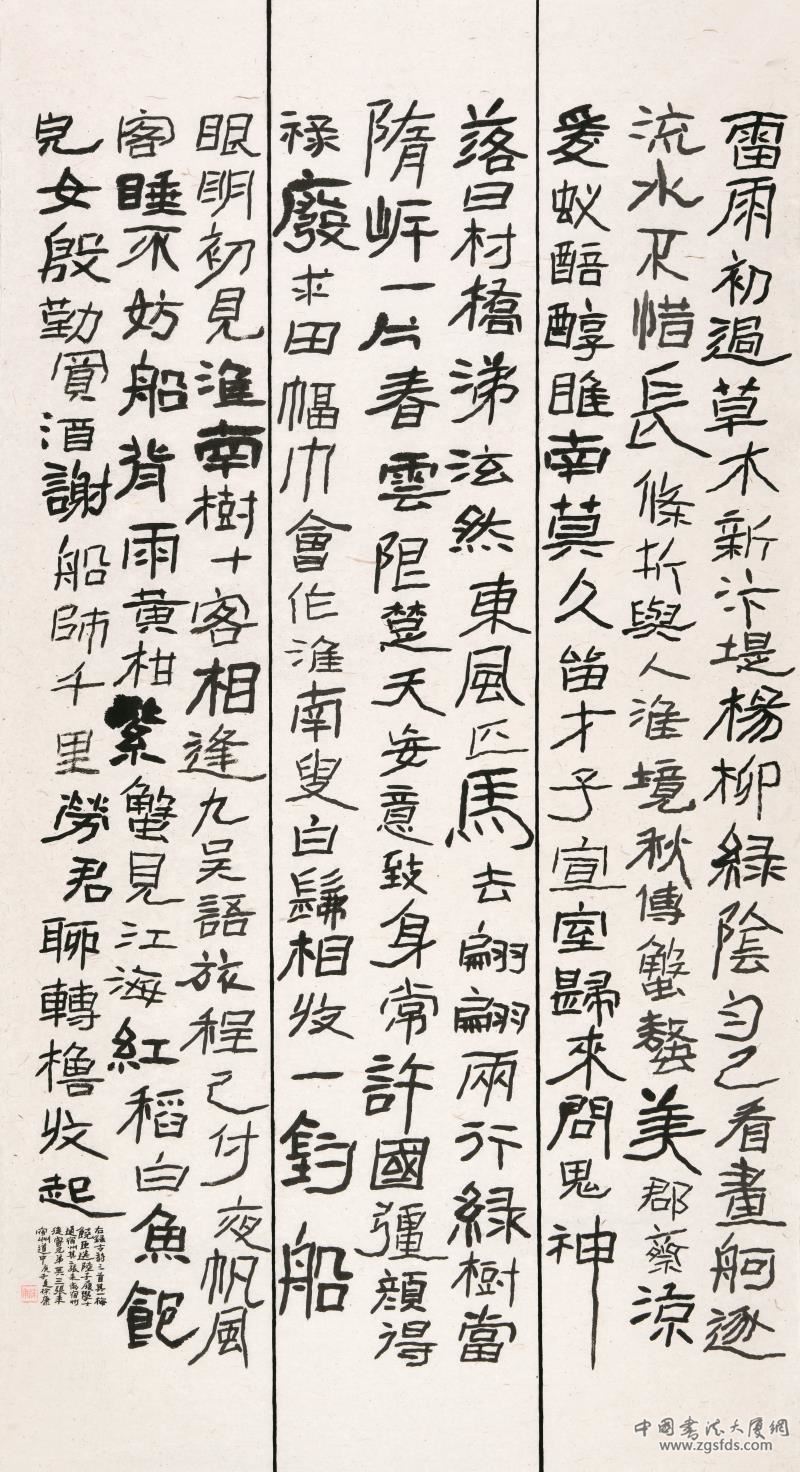 雷雨初過草木新汴堤楊柳綠陰勻已看畫舸逐
流水不惜長條折與人淮境秋傳蟹螯美郡齋涼
愛蚁醅醇睢南莫久留才子宣室歸來問鬼神
落日村橋涕泫然東風匹馬去翩翩兩行綠樹當
隋岸一片春雲阻楚天妄意致身常許國彊顏得
祿廢求田幅巾會作淮南叟白髴相收一釣船
眼明初見淮南樹十客相逢九吳語旅程已付夜帆風
客睡不妨船背雨黃柑紫蟹見江海紅稻白魚飽
兒女殷勤買酒謝船師千里勞君聊轉櫓收起
右錄古詩三首其一梅
堯臣送陸子履學士
過宿州其二張耒離宿州
後寄兄弟其三張耒
宿州道中庚子夏徐
中國書法大廈網
www.zgsfds.com